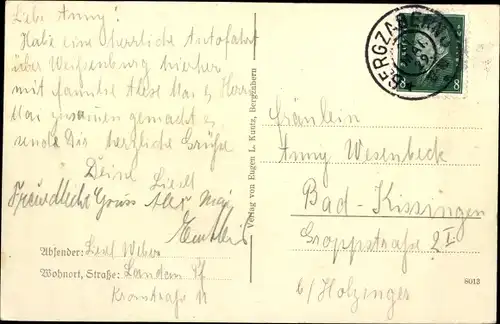 Liebe Anny!
Habe eine herrliche Autofahrt
über Weißenburg hierher
mit Familie Mai & Herrn
Mai zusammen gemacht &
sende Dir herzliche Grüße
Deine
Liesel
Freundliche Gruss Mai
Absender: Liesl Weber
Wohnort, Straße: Landau Pf
Kronstraße 11
Verlag von Eugen L. Kuntz, Bergzabern
BERGZABERN
8
8
Fräulein
Anny Wesenbeck
Bad-Kissingen
straße 2 I
b/Holzinger
8013